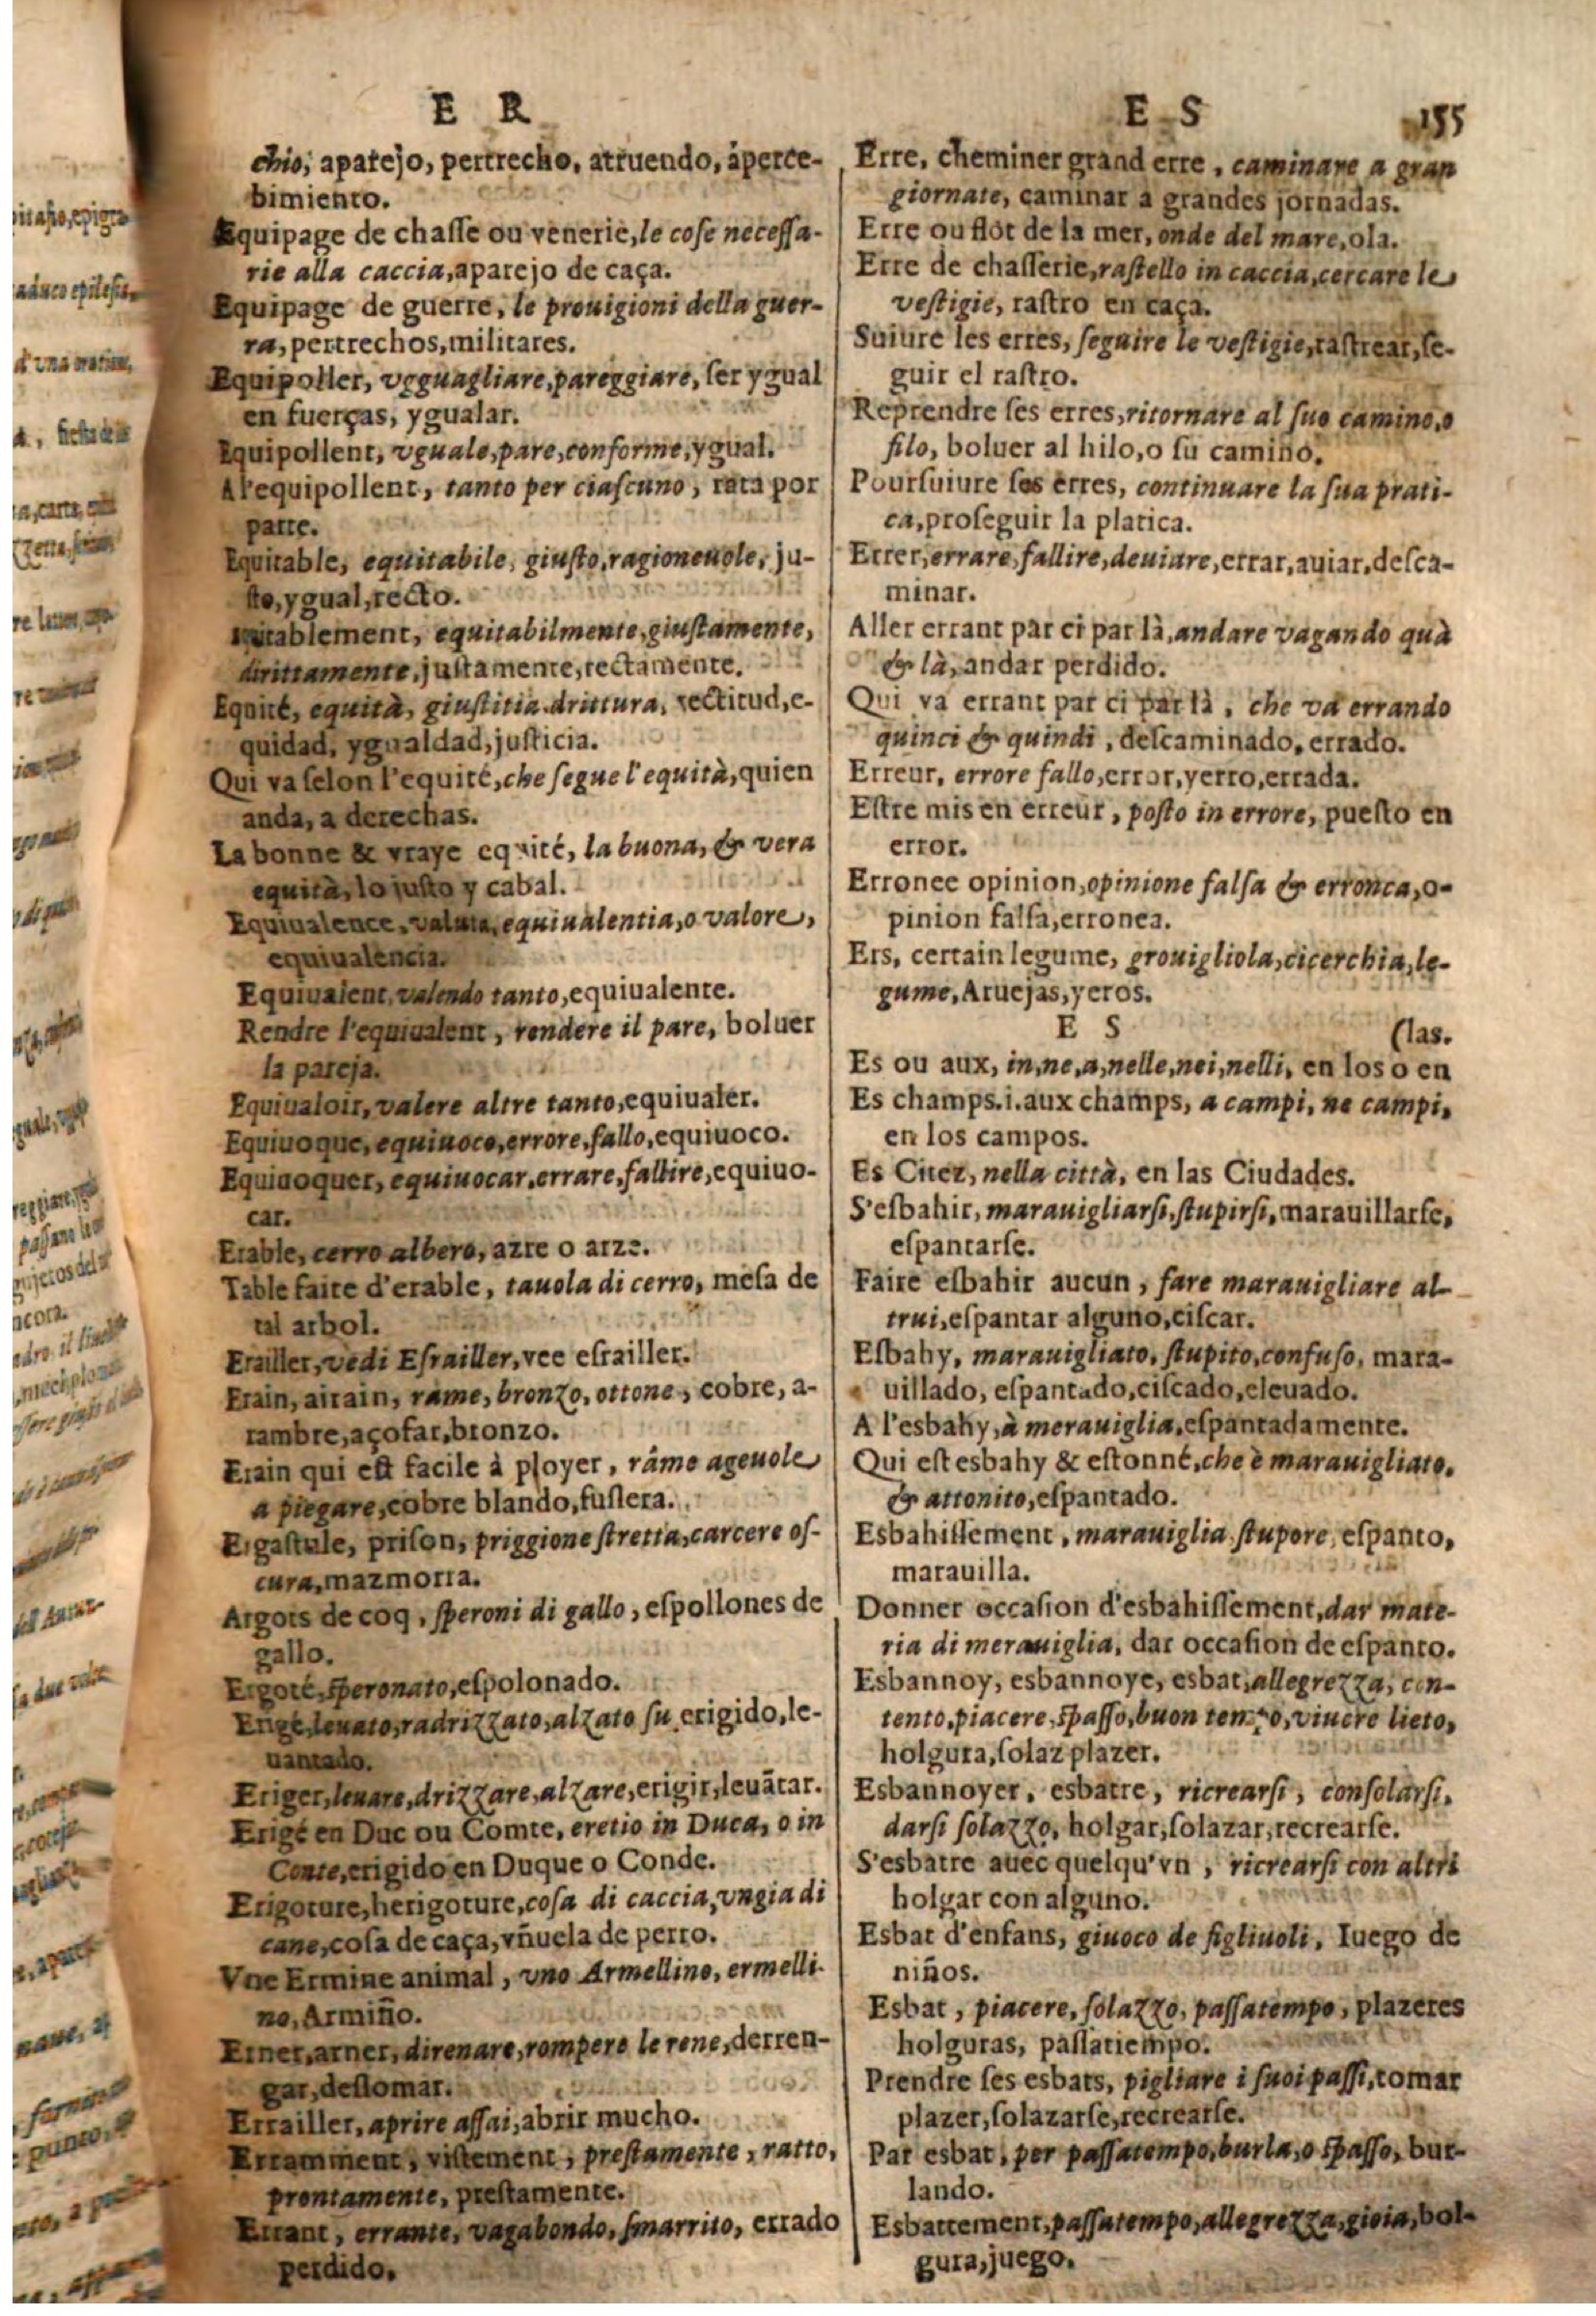 E R
chio, aparejo, pertrecho, atruendo, aperce-
bimiento.
Equipage de chasse ou venerie, le cose necessa-
rie alla caccia, aparejo de caça.
Equipage de guerre, le prouigioni della guer-
ra, pertrechos, militares.
Equipoller, vgguagliare, pareggiare, ser ygual
en fuerças, ygualar.
Equipollent, vguale, pare, conforme, ygual.
A l'equipollent, tanto per ciascuno, rata por
parte.
Equitable, equitabile, giusto, ragioneuole, ju-
sto, ygual, recto.
equitabilmente, giustamente,
dirittamente, justamente, rectamente.
Equité, equità, giustitia, drittura, rectitud, e-
quidad, ygualdad, justicia.
Qui va selon l'equité, che segue l'equità, quien
anda, a derechas.
La bonne & vraye equité, la buona, & vera
equità, lo justo y cabal.
Equiualence, valuta, equiualentia, o valore,
equiualencia.
Equiualent, valendo tanto, equiualente.
Rendre l'equiualent, rendere il pare, boluer
la pareja.
Equiualoir, valere altre tanto, equiualer.
Equiuoque, equiuoco, errore, fallo, equiuoco.
Equiuoquer, equiuocar, errare, fallire, equiuo-
car.
Erable, cerro albero, azre o arze.
Table faite d'erable, tauola di cerro, mesa de
tal arbol.
Erailler, vedi Esrailler, vee esrailler.
Erain, airain, rame, bronzo, ottone, cobre, a-
rambre, açofar, bronzo.
Erain qui est facile à ployer, rame ageuole
a piegare, cobre blando, fuslera.
Ergastule, prison, priggione stretta, carcere os-
cura, mazmorra.
Argots de coq, speroni di gallo, espollones de
gallo.
Ergoté, speronato, espolonado.
Erigé, leuato, radrizzato, alzato su, erigido, le-
uantado.
Eriger, leuare, drizzare, alzare, erigir, leuãtar.
Erigé en Duc ou Comte, eretio in Duca, o in
Conte, erigido en Duque o Conde.
Erigoture, herigoture, cosa di caccia, vngia di
cane, cosa de caça, vñuela de perro.
Vne Ermine animal, vno Armellino, ermelli-
no, Armiño.
Erner, arner, direnare, rompere le rene, derren-
gar, deslomar.
Errailler, aprire assai, abrir mucho.
Erramment, vistement, prestamente, ratto,
prontamente, prestamente.
Errant, errante, vagabondo, smarrito, errado
perdido.
E S 155
Erre, cheminer grand erre, caminare a gran
giornate, caminar a grandes jornadas.
Erre ou flot de la mer, onde del mare, ola.
Erre de chasserie, rastello in caccia, cercare le
vestigie, rastro en caça.
Suiure les erres, seguire le vestigie, rastrear, se-
guir el rastro.
Reprendre ses erres, ritornare al suo camino, o
filo, boluer al hilo, o su camino.
Poursuiure ses erres, continuare la sua prati-
ca, proseguir la platica.
Errer, errare, fallire, deuiare, errar, auiar, desca-
minar.
Aller errant par ci par là, andare vagando quà
& là, andar perdido.
Qui va errant par ci par là, che va errando
quinci & quindi, descaminado, errado.
Erreur, errore fallo, error, yerro, errada.
Estre mis en erreur, posto in errore, puesto en
error.
Erronee opinion, opinione falsa & erronca, o-
pinion falsa, erronea.
Ers, certain legume, grouigliola, cicerchia, le-
gume, Aruejas, yeros.
E S (las.
Es ou aux, in, ne, a, nelle, nei, nelli, en los o en
Es champs.i.aux champs, a campi, ne campi,
en los campos.
Es Citez, nella città, en las Ciudades.
S'esbahir, marauigliarsi, stupirsi, marauillarse,
espantarse.
Faire esbahir aucun, fare marauigliare al-
trui, espantar alguno, ciscar.
Esbahy, marauigliato, stupito, confuso, mara-
uillado, espantado, ciscado, eleuado.
A l'esbahy, à merauiglia, espantadamente.
Qui est esbahy & estonné, che è marauigliato,
& attonito, espantado.
Esbahissement, marauiglia, stupore, espanto,
marauilla.
Donner occasion d'esbahissement, dar mate-
ria di merauiglia, dar occasion de espanto.
Esbannoy, esbannoye, esbat, allegrezza, con-
tento, piacere, spasso, buon tempo, viuere lieto,
holgura, solaz plazer.
Esbannoyer, esbatre, ricrearsi, consolarsi,
darsi solazzo, holgar, solazar, recrearse.
S'esbatre auec quelqu'vn, ricrearsi con altri
holgar con alguno.
Esbat d'enfans, giuoco de figliuoli, Iuego de
niños.
Esbat, piacere, solazzo, passatempo, plazeres
holguras, passatiempo.
Prendre ses esbats, pigliare i suoi passi, tomar
plazer, solazarse, recrearse.
Par esbat, per passatempo, burla, o spasso, bur-
lando.
Esbattement, passatempo, allegrezza, gioia, bol-
gura, juego.